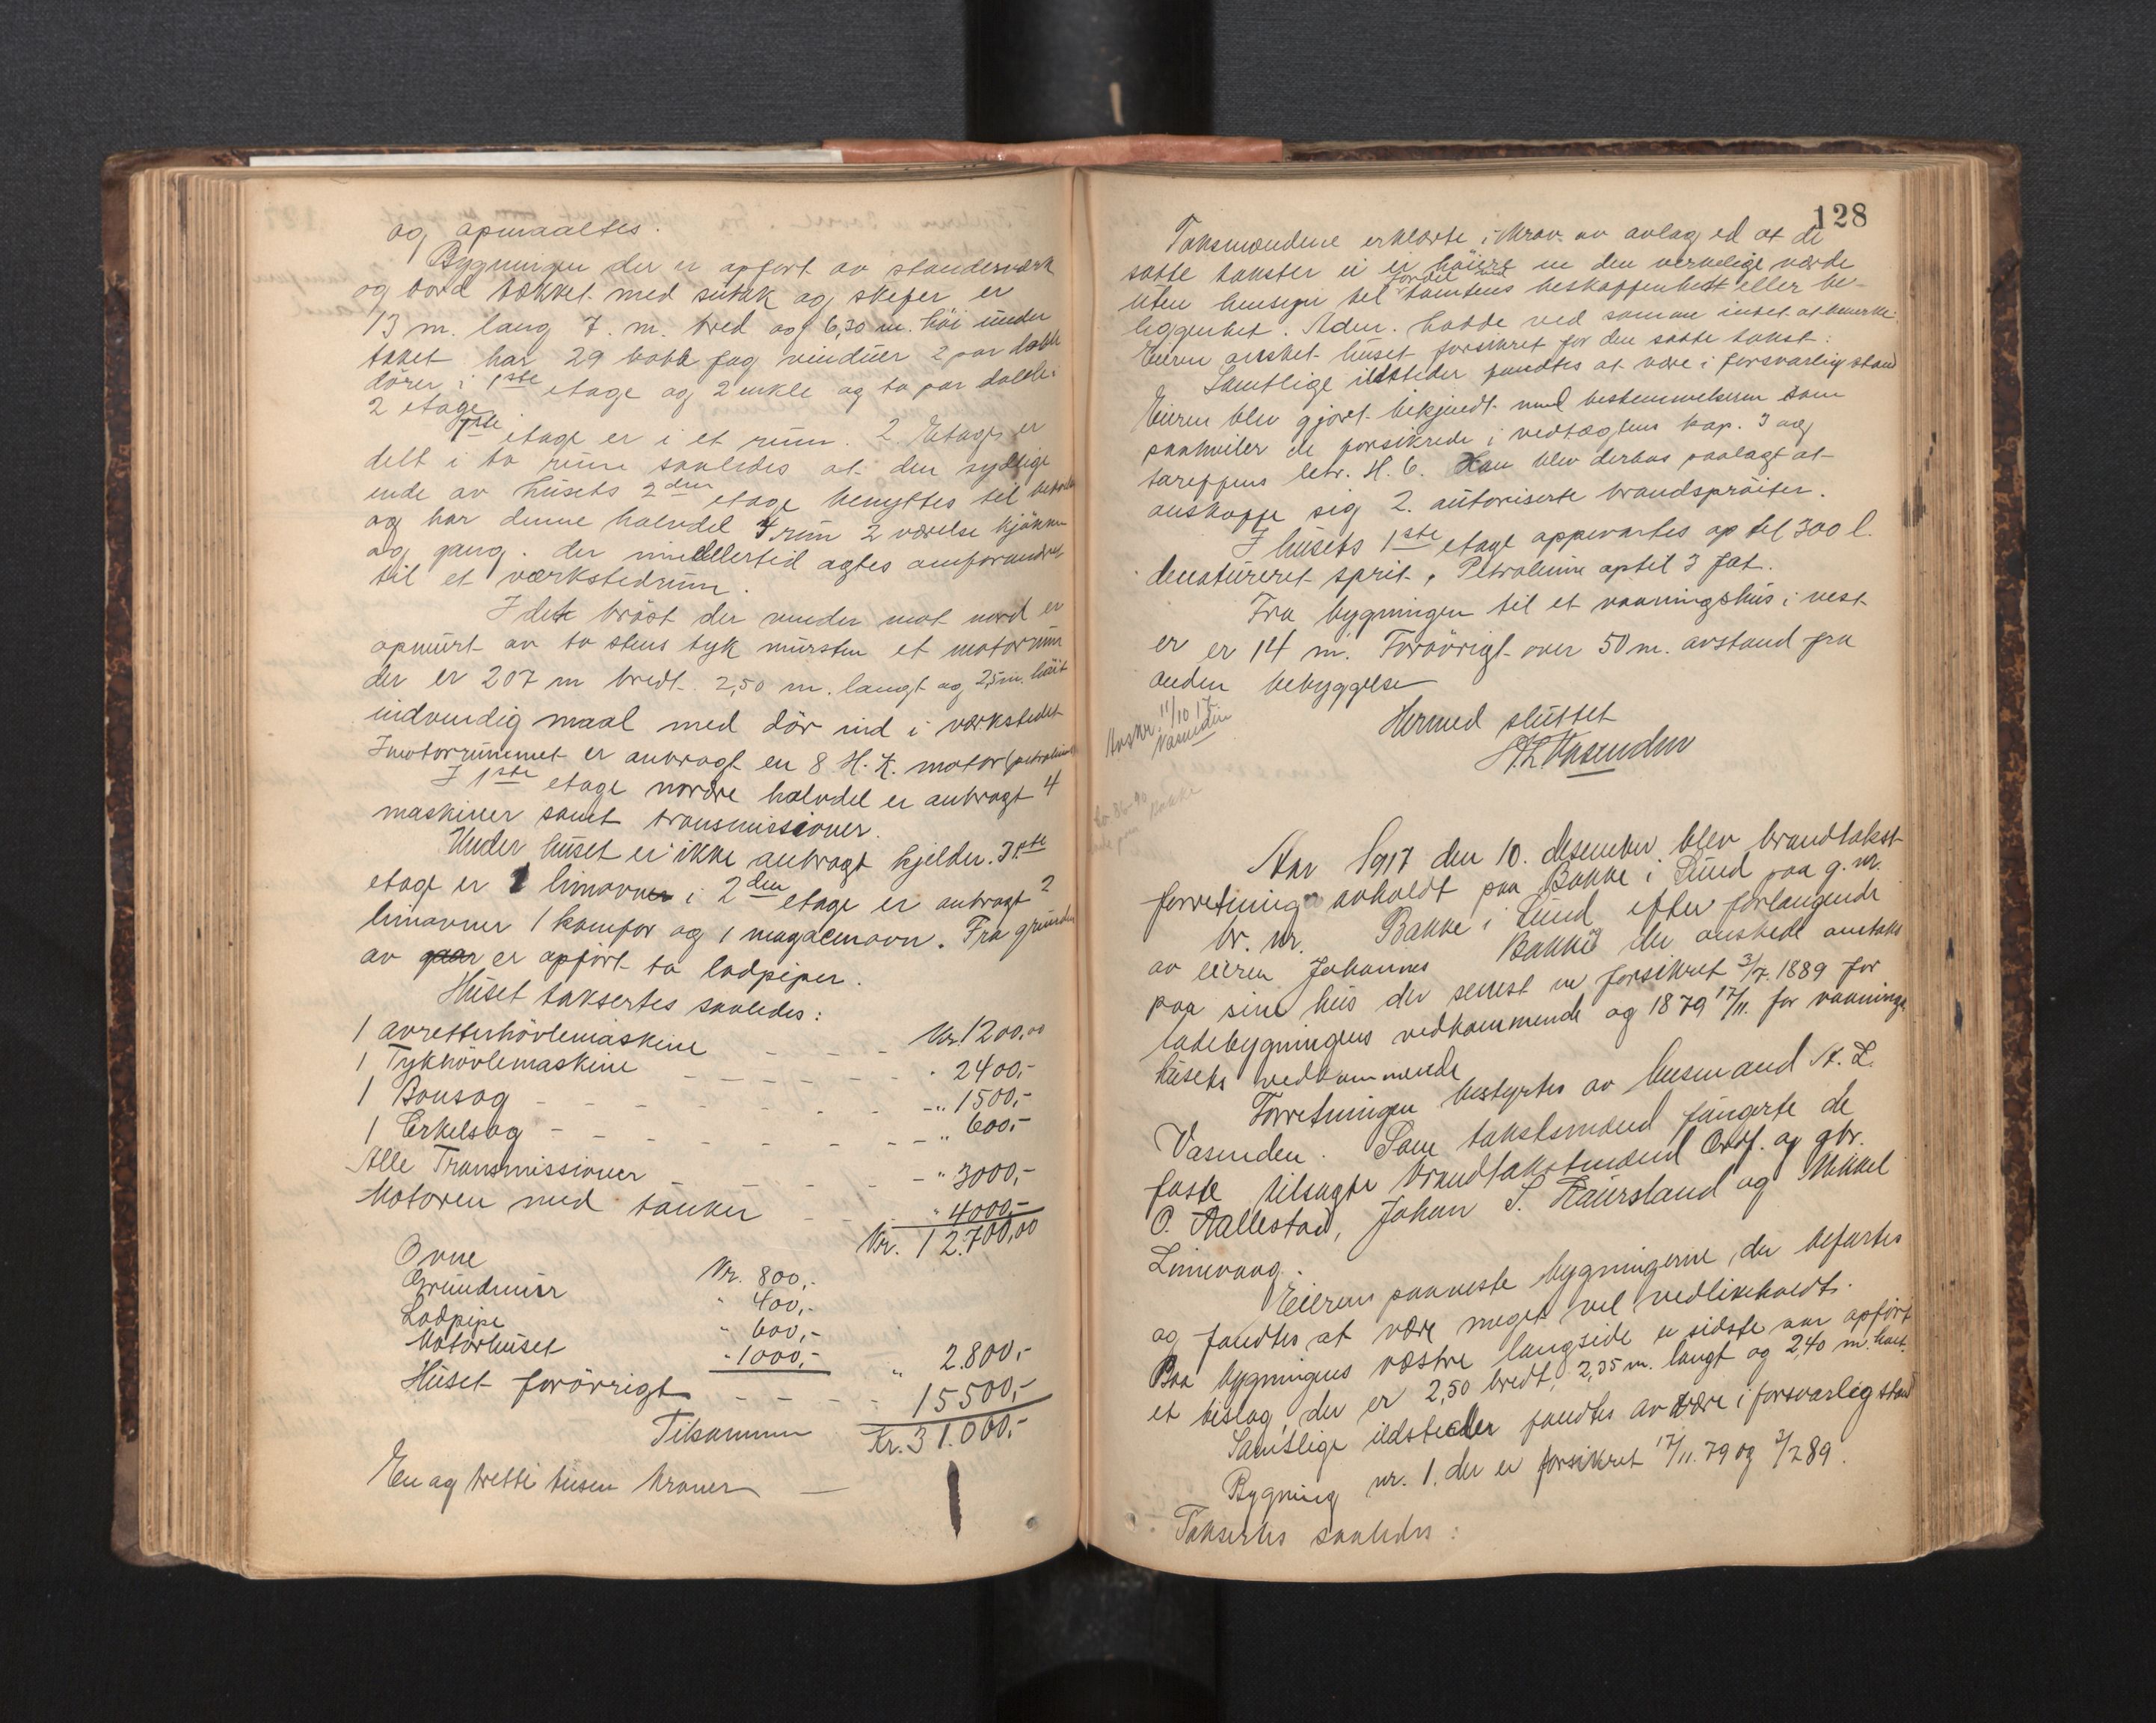 og opmaaltes.
Bygningen der er opført av standerværk
og bord tækket med sutak og skefer er
13 m. lang 7. m. bred og 6,30 m. höi under
taket har 29 fag vinduer 2 par dobb
dörer i 1ste etage og 2 enkle og to par dobb.
2 etage.
1ste etage er i et rum. 2. Etage er
delt i to rum saaledes at den sydlige
ende av husets 2den etage benyttes til
og har denne halvdel 4 rum 2 værelse kjökken
og gang. der imidlertid agtes omforandret
til et værkstedrum.
I det bröst der vender mot nord er
opmurt av to stens tyk mursten et motorrum
der er 207 m bredt. 2,50 m. langt og 2,5 m. höit
indvendig maal med dör ind i værkstedet
I motorrummet er anbragt en 8 H.K. motor (petroleum
I 1ste etage nordre halvdel er anbragt 4
maskiner samt transmissioner.
Under huset er ikke anbragt kjelder. I 1ste
etage er 1 limovn i 2den etage er anbragt 2
limovner 1 komfor og 1 magasinovn. Fra grunden
av er opført to lodpiper.
Huset taksertes saaledes:
1 avretterhövlemaskine - - - Kr. 1200,00
1 Tykhövlemaskine - - - - - - " 2400,-
1 Bansag - - - - - - - - " 1500,-
1 Sirkelsag - - - - - - - - " 600,-
Alle Transmissioner - - - - - " 3000,-
Motoren med tanker - - - " 4000,-
Kr. 12.700,00
Ovne Kr. 800,-
Grundmur " 400,-
Lodpipe " 600,-
Motorhuset " 1000,- " 2.800,-
Huset forövrigt - - - - 15500,-
Tilsammen Kr. 31.000,-
En og tretti tusen kroner —
128
Taksmændene erklærte i krav av avlag ed at de
satte takster ei er höiere en den verkelige værde
uten hensyn til fordel ved tomtens beskaffenhet eller be-
liggenhet. Adm. hadde ved samme intet at bemerke.
Eieren önsket huset forsikret for den satte takst.
Samtlige ildsteder fandtes at være i forsvarlig stand
Eieren blev gjort bekjendt med bestemmelserne som
paahviler de forsikrede i vedtægtens kap. 3 og
tareffens letr. H. 6. Han blev derhos paalagt at
anskaffe sig 2. autoriserte brandspröiter.
I husets 1ste etage oppevartes op til 300 l.
denatureret sprit, Petroleum optil 3 fat.
Fra bygningen til et vaaningshus i vest
er er 14 m. Forövrigt over 50 m. avstand fra
anden bebyggelse
Hermed sluttet
A. L. Vasenden
Avskr. 11/10 17
Vasenden
Aar 1917 den 10. desember blev brandtakst-
forretning avholdt paa Bakke i Lund paa g. nr.
br. nr. Bakke i Lund efter forlangende
av eieren Johannes Bakke der önskede omtakst
paa sine hus der senest er forsikret 3/7. 1889 for
ladebygningens vedkommende og 1879 17/11. for vaanings
husets vedkommende
Forretningen bestyrtes av lensmand A. L.
Vasenden. Som takstmænd fungerte de
faste tilsagte brandtakstmænd Ordf. og gbr.
O. Aallestad, Johan S. Haursland og Mikkel
Linevaag.
Eieren paaveste bygningerne, der befartes
og fandtes at være meget vel vedlikeholdt.
Paa bygningens væstre langside er sidste aar opført
et bislag, der er 2,50 bredt, 2,35 m. langt og 2,40 m. höit.
Samtlige ildsteder fandtes av være i forsvarlig stand
Bygning nr. 1. der er forsikret 17/11. 79 og 3/7 89.
Taksertes saaledes: